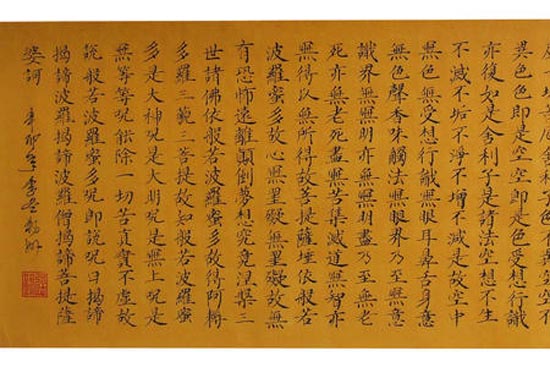 異色色即是空空即是色受想行識
亦復如是舍利子是諸法空想不生
不滅不垢不淨不增不減是故空中
無色無受想行識無眼耳鼻舌身意
無色聲香味觸法無眼界乃至無意
識界無無明亦無無明盡乃至無老
死亦無老死盡無苦集滅道無智亦
無得以無所得故菩提薩埵依般若
波羅蜜多故心無罣礙無罣礙故無
有恐怖遠離顛倒夢想究竟涅槃三
世諸佛依般若波羅蜜多故得阿耨
多羅三藐三菩提故知般若波羅蜜
多是大神呪是大明呪是無上呪是
無等等呪能除一切苦真實不虛故
說般若波羅蜜多呪即說呪曰揭諦
揭諦波羅揭諦波羅僧揭諦菩提薩
婆訶 辛卯